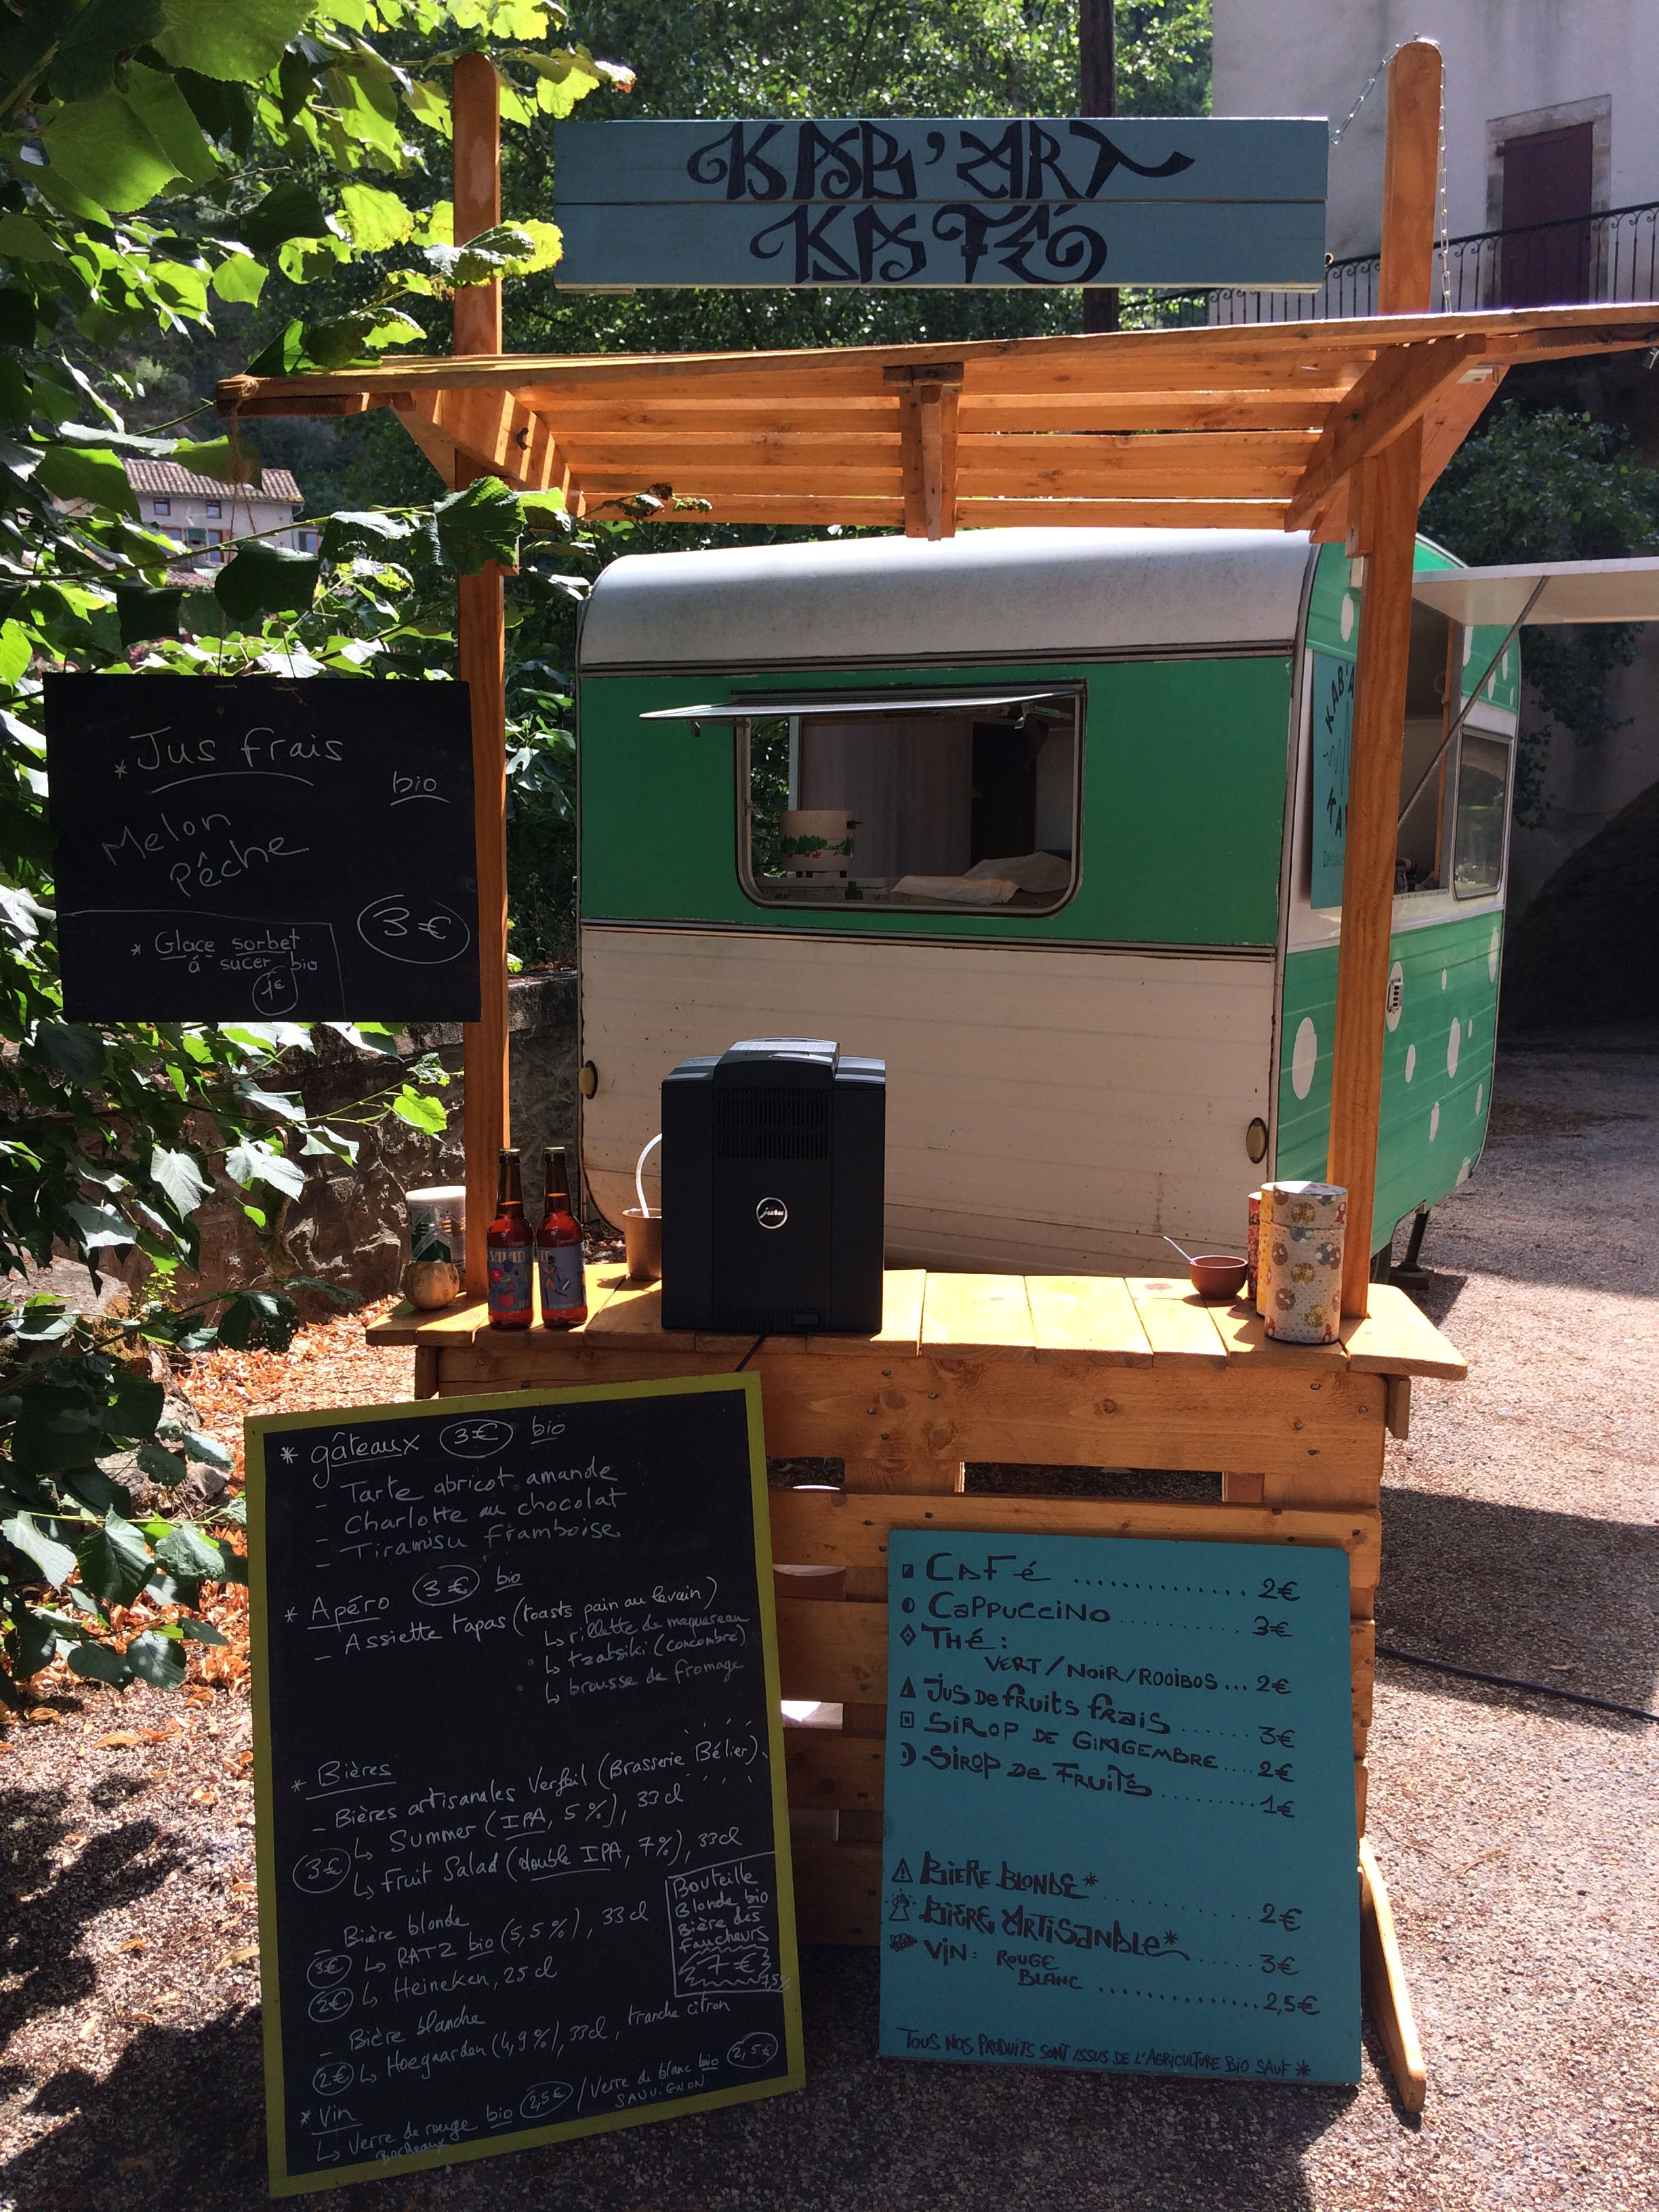 KAB'ART
KATÉ
* Jus frais
bio
Melon
Pêche
3€
* Glace sorbet
à sucer bio
1€
KAB'A
KA
jura
SALAD
* gâteaux 3€ bio
- Tarte abricot amande
- Charlotte au chocolat
- Tiramisu framboise
* Apéro 3€ bio
- Assiette tapas (toasts pain au levain)
↳ rillette de maquereau
↳ tzatsiki (concombre)
↳ brousse de fromage
* Bières
- Bières artisanales Verfeil (Brasserie Bélier)
3€ ↳ Summer (IPA, 5%), 33cl
↳ Fruit Salad (double IPA, 7%), 33cl
- Bière blonde
3€ ↳ RATZ bio (5,5%), 33cl
2€ ↳ Heineken, 25cl
- Bière blanche
2€ ↳ Hoegaarden (4,9%), 33cl, tranche citron
Bouteille
Blonde bio
Bière des
faucheurs
7€
75cl
* Vin
↳ Verre de rouge bio 2,5€ / Verre de blanc bio 2,5€
Bordeaux
SAUVIGNON
CAFé .............. 2€
CAPPUCCINO .......... 3€
THé :
VERT/NOIR/ROOIBOS ... 2€
JUS DE fRUITS fRAIS ...... 3€
SIROP DE GINGEMBRE .... 2€
SIROP DE FRUITS ......... 1€
BIERE BLONDE* ............ 2€
BIERE ARTISANALE* ....... 3€
VIN : ROUGE
BLANC .............. 2,5€
TOUS NOS PRODUITS SONT ISSUS DE L'AGRICULTURE BIO SAUF *